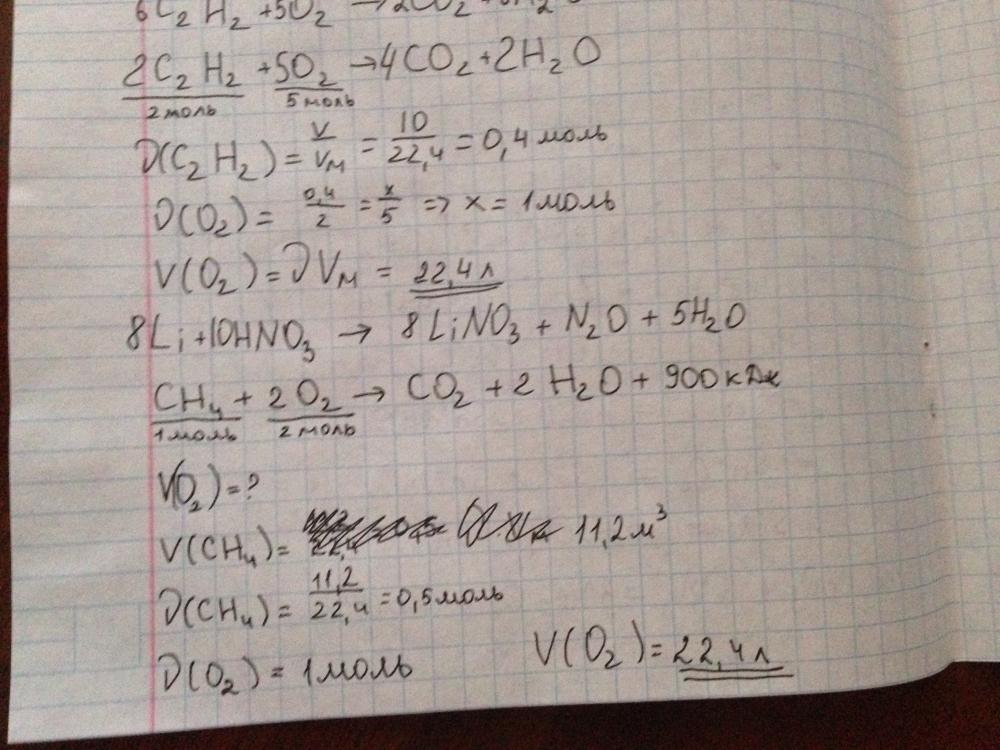 6C₂H₂ + 5O₂ → 2CO₂
2C₂H₂ + 5O₂ → 4CO₂ + 2H₂O
2 моль 5 моль
ν(C₂H₂) = V/Vм = 10/22,4 = 0,4 моль
ν(O₂) = 0,4/2 = x/5 => x = 1 моль
V(O₂) = νVм = 22,4 л
8Li + 10HNO₃ → 8LiNO₃ + N₂O + 5H₂O
CH₄ + 2O₂ → CO₂ + 2H₂O + 900 кДж
1 моль 2 моль
V(O₂) = ?
V(CH₄) = 11,2 м³
ν(CH₄) = 11,2/22,4 = 0,5 моль
ν(O₂) = 1 моль V(O₂) = 22,4 л